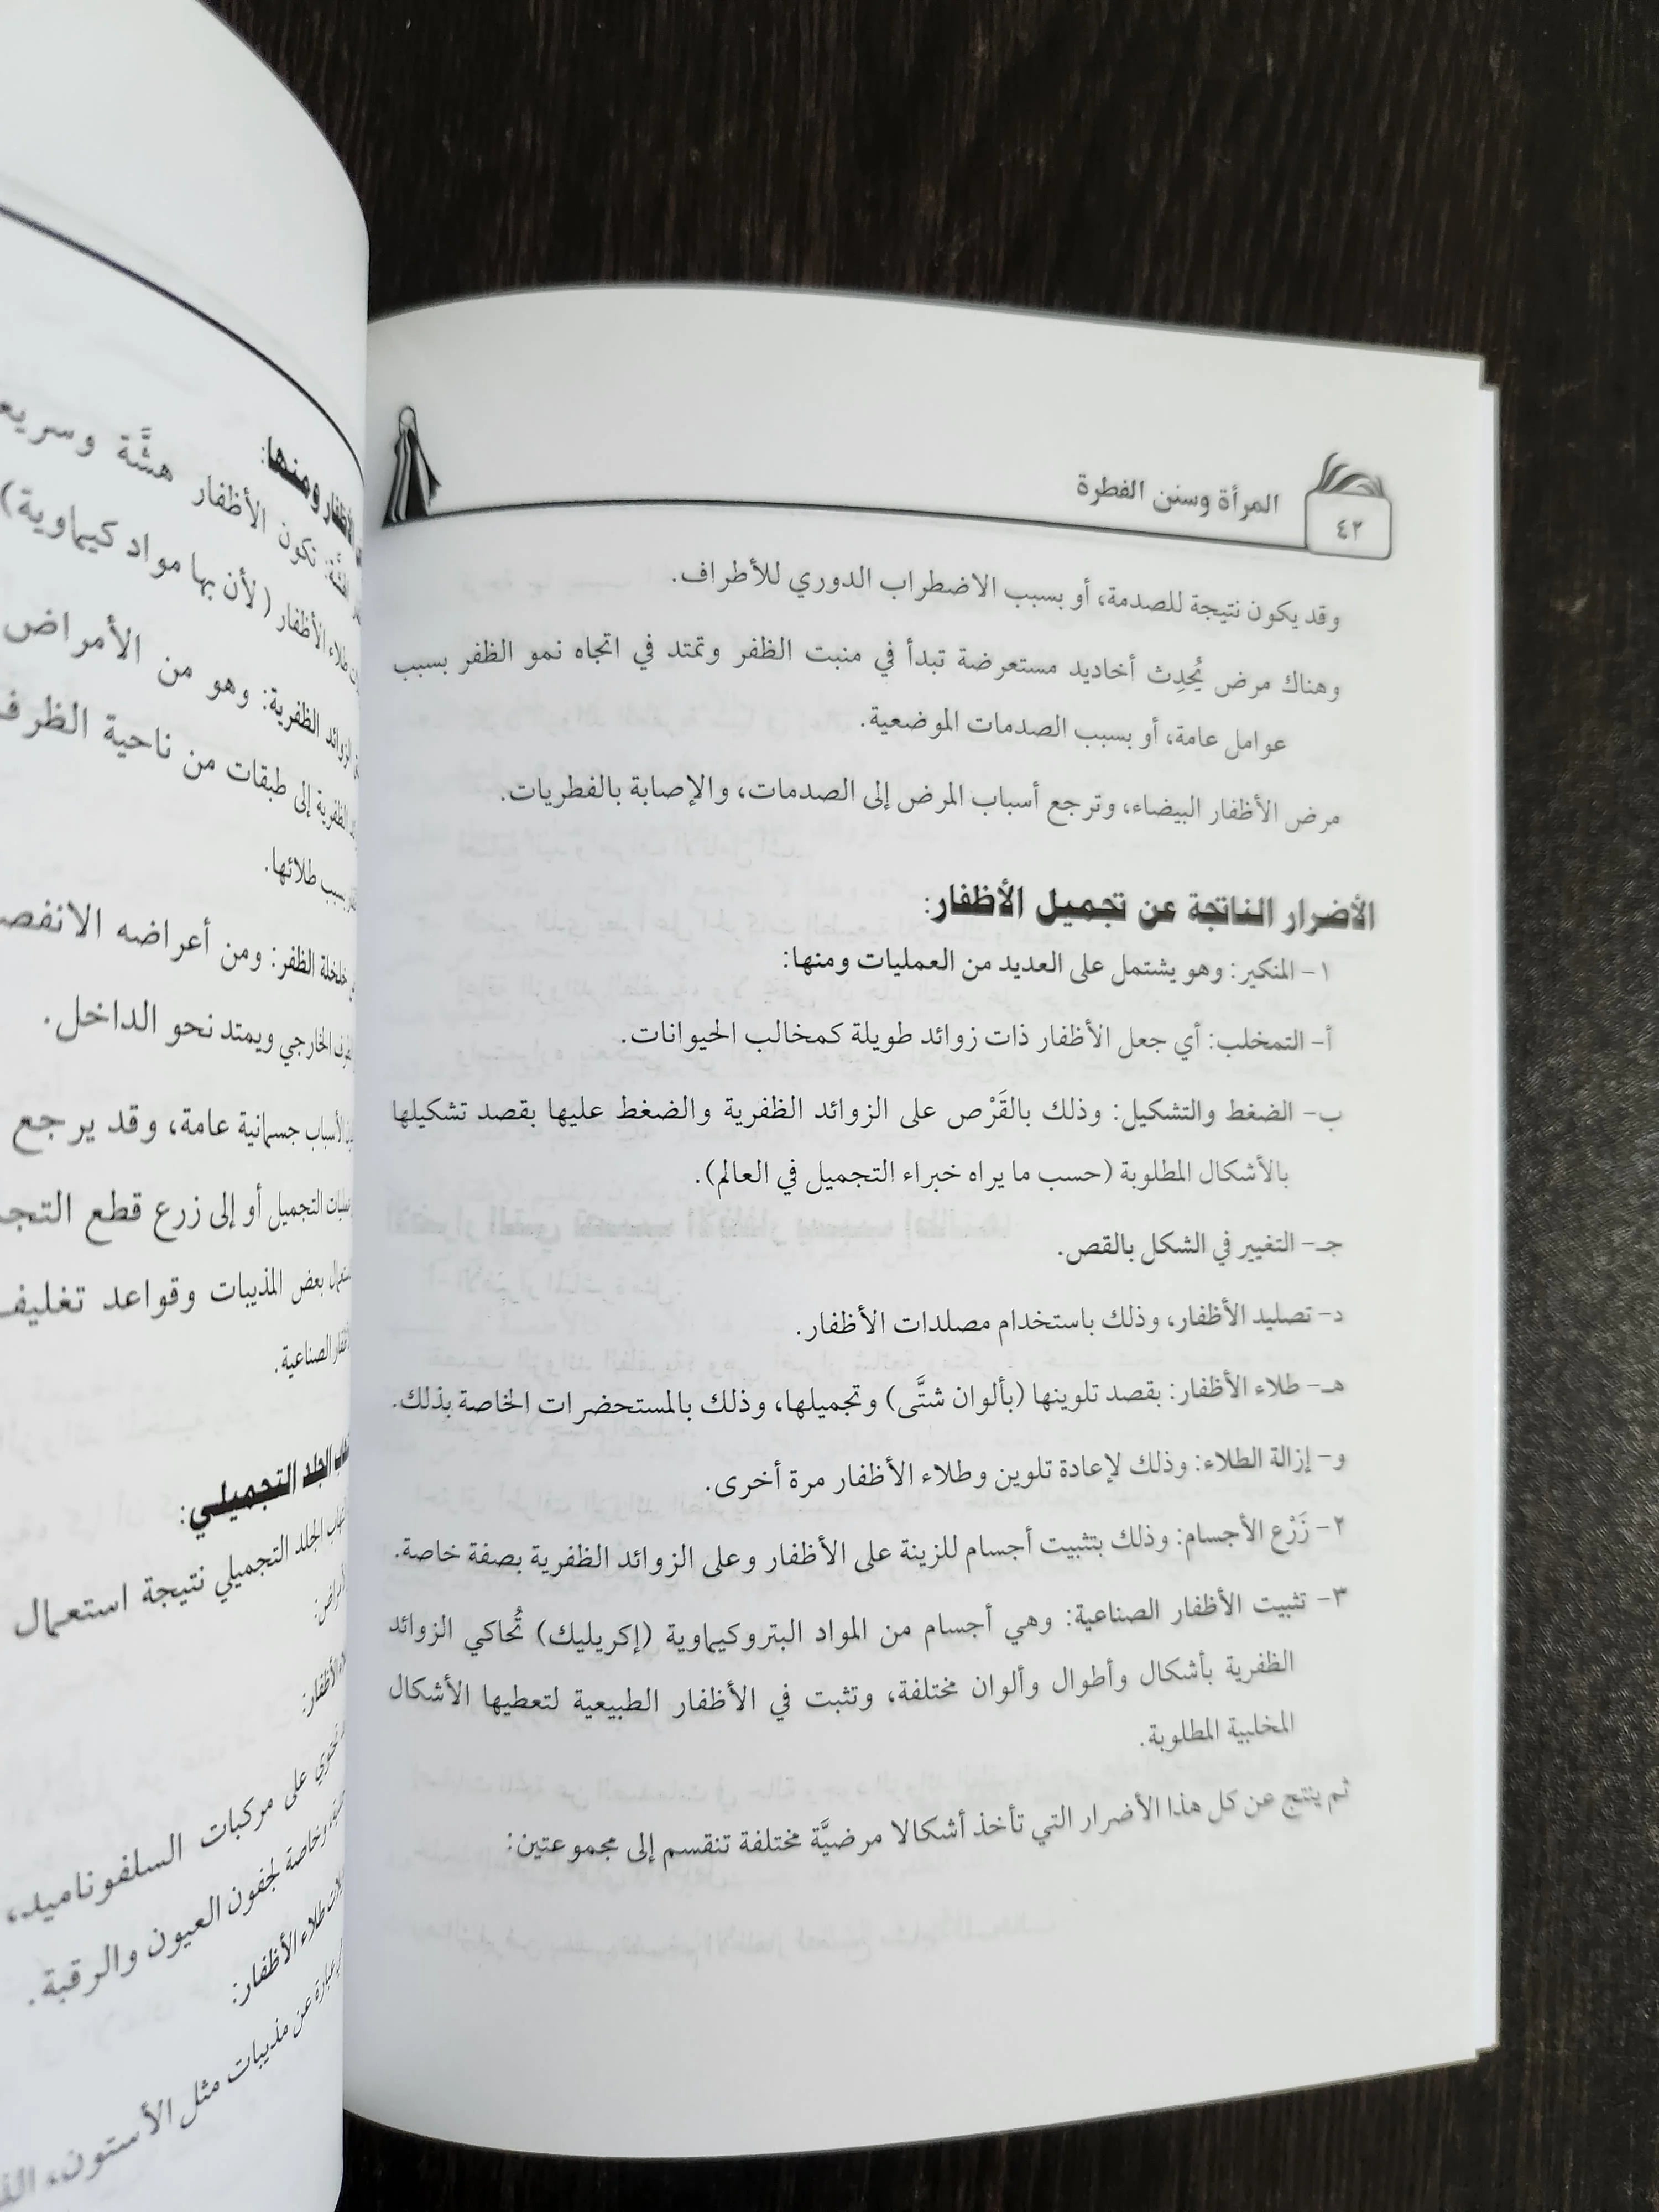 المرأة وسنن الفطرة
٤٢
وقد يكون نتيجة للصدمة، أو بسبب الاضطراب الدوري للأطراف.
وهناك مرض يُحدِث أخاديد مستعرضة تبدأ في منبت الظفر وتمتد في اتجاه نمو الظفر بسبب
عوامل عامة، أو بسبب الصدمات الموضعية.
مرض الأظفار البيضاء، وترجع أسباب المرض إلى الصدمات، والإصابة بالفطريات.
الأضرار الناتجة عن تجميل الأظفار:
١- المنكير: وهو يشتمل على العديد من العمليات ومنها:
أ- التمخلب: أي جعل الأظفار ذات زوائد طويلة كمخالب الحيوانات.
ب- الضغط والتشكيل: وذلك بالقَرْص على الزوائد الظفرية والضغط عليها بقصد تشكيلها
بالأشكال المطلوبة (حسب ما يراه خبراء التجميل في العالم).
جـ- التغيير في الشكل بالقص.
د- تصليد الأظفار، وذلك باستخدام مصلدات الأظفار.
هـ- طلاء الأظفار: بقصد تلوينها (بألوان شتَّى) وتجميلها، وذلك بالمستحضرات الخاصة بذلك.
و- إزالة الطلاء: وذلك لإعادة تلوين وطلاء الأظفار مرة أخرى.
٢- زَرْع الأجسام: وذلك بتثبيت أجسام للزينة على الأظفار وعلى الزوائد الظفرية بصفة خاصة.
٣- تثبيت الأظفار الصناعية: وهي أجسام من المواد البتروكيماوية (إكريليك) تُحاكي الزوائد
الظفرية بأشكال وأطوال وألوان مختلفة، وتثبت في الأظفار الطبيعية لتعطيها الأشكال
المخلبية المطلوبة.
ثم ينتج عن كل هذا الأضرار التي تأخذ أشكالا مرضيَّة مختلفة تنقسم إلى مجموعتين:
الأظفار ومنها:
تكون الأظفار هشَّة
طلاء الأظفار (لأن بها مواد كيماوية)
الزوائد الظفرية: وهو من الأمراض
الظفرية إلى طبقات من ناحية
بسبب طلائها.
خلخلة الظفر: ومن أعراضه
الخارجي ويمتد نحو الداخل.
لأسباب جسمانية عامة، وقد يرجع
التجميل أو إلى زرع قطع
بعض المذيبات وقواعد
الصناعية.
الجلد التجميلي:
الجلد التجميلي نتيجة استعمال
الأظفار:
على مركبات السلفوناميد،
وخاصة لجفون العيون والرقبة.
طلاء الأظفار:
عبارة عن مذيبات مثل الأستون،